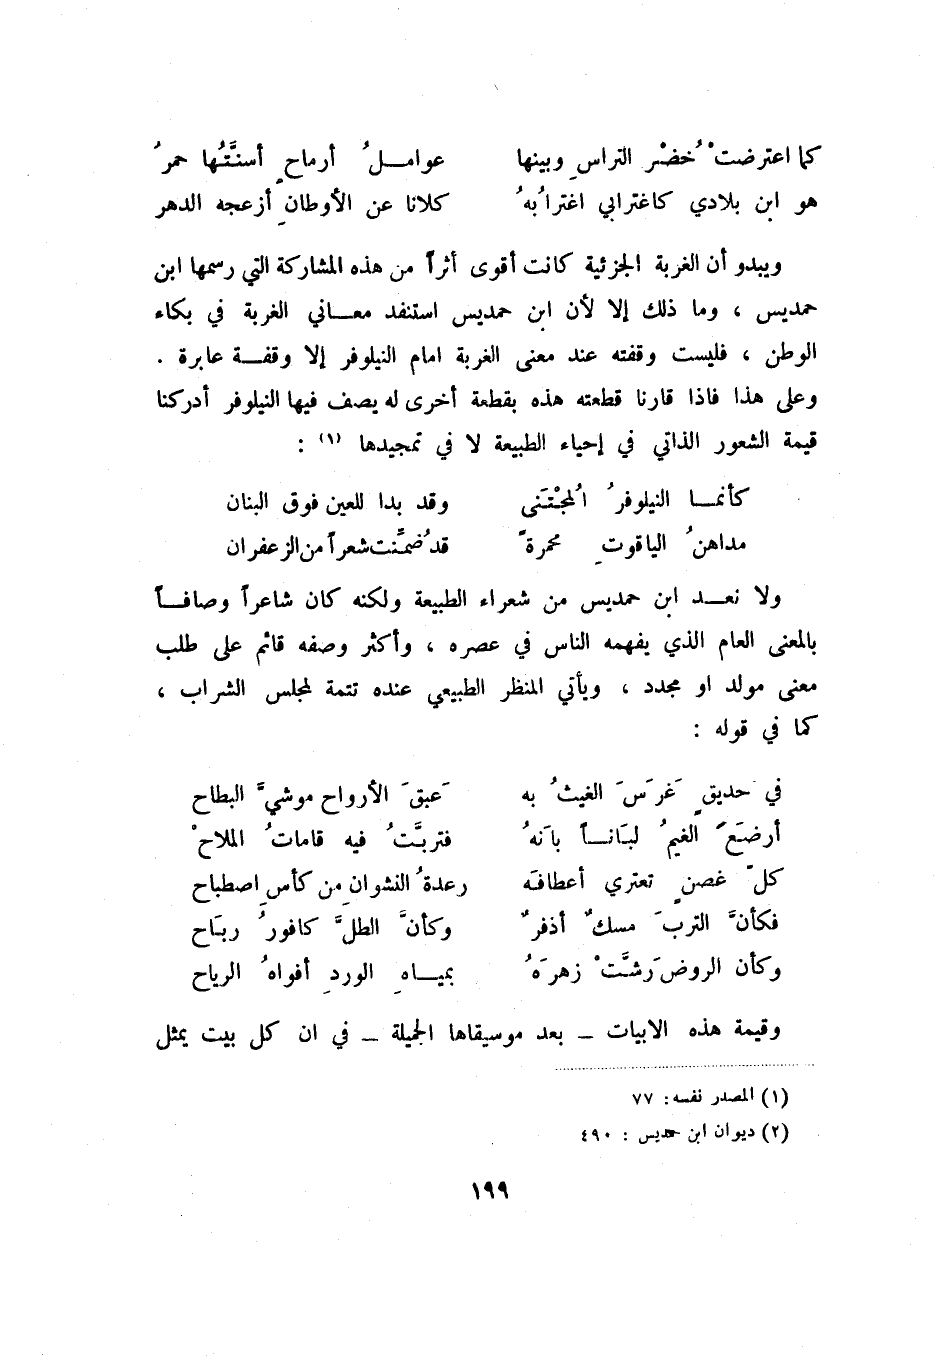 كما اعترضتْ خُضْر التراسِ وبينها عواملُ أرماحٍ أسنَّتُها حمرُ
هو ابن بلادي كاغترابي اغترابُهُ كلانا عن الأوطانِ أزعجه الدهر
ويبدو أن الغربة الجزئية كانت أقوى أثراً من هذه المشاركة التي رسمها ابن
حمديس ، وما ذلك إلا لأن ابن حمديس استنفد معاني الغربة في بكاء
الوطن ، فليست وقفته عند معنى الغربة امام النيلوفر إلا وقفة عابرة .
وعلى هذا فاذا قارنا قطعته هذه بقطعة أخرى له يصف فيها النيلوفر أدركنا
قيمة الشعور الذاتي في إحياء الطبيعة لا في تمجيدها (١) :
كأنما النيلوفرُ المُجْتَنى وقد بدا للعين فوق البنان
مداهنُ الياقوتِ محمرةً قد ضُمِّنت شعراً من الزعفران
ولا نعد ابن حمديس من شعراء الطبيعة ولكنه كان شاعراً وصافاً
بالمعنى العام الذي يفهمه الناس في عصره ، وأكثر وصفه قائم على طلب
معنى مولد او مجدد ، ويأتي المنظر الطبيعي عنده تتمة لمجلس الشراب ،
كما في قوله :
في حديقٍ غَرَسَ الغيثُ به عَبِقَ الأرواح موشيَّ البطاح
أرضعَ الغيمُ لبَاناً بانَهُ فتربَّتُ فيه قاماتُ الملاحْ
كلّ غصنٍ تعتري أعطافَه رعدةُ النشوانِ من كأسِ اصطباح
فكأنَّ التربَ مسكٌ أذفرٌ وكأنَّ الطلَّ كافورُ ربَاح
وكأن الروضَ رشَّتْ زهرَهُ بمياهِ الوردِ أفواهُ الرياح
وقيمة هذه الابيات ــ بعد موسيقاها الجميلة ــ في ان كل بيت يمثل
(١) المصدر نفسه : ٧٧
(٢) ديوان ابن حمديس : ٤٩٠
١٩٩